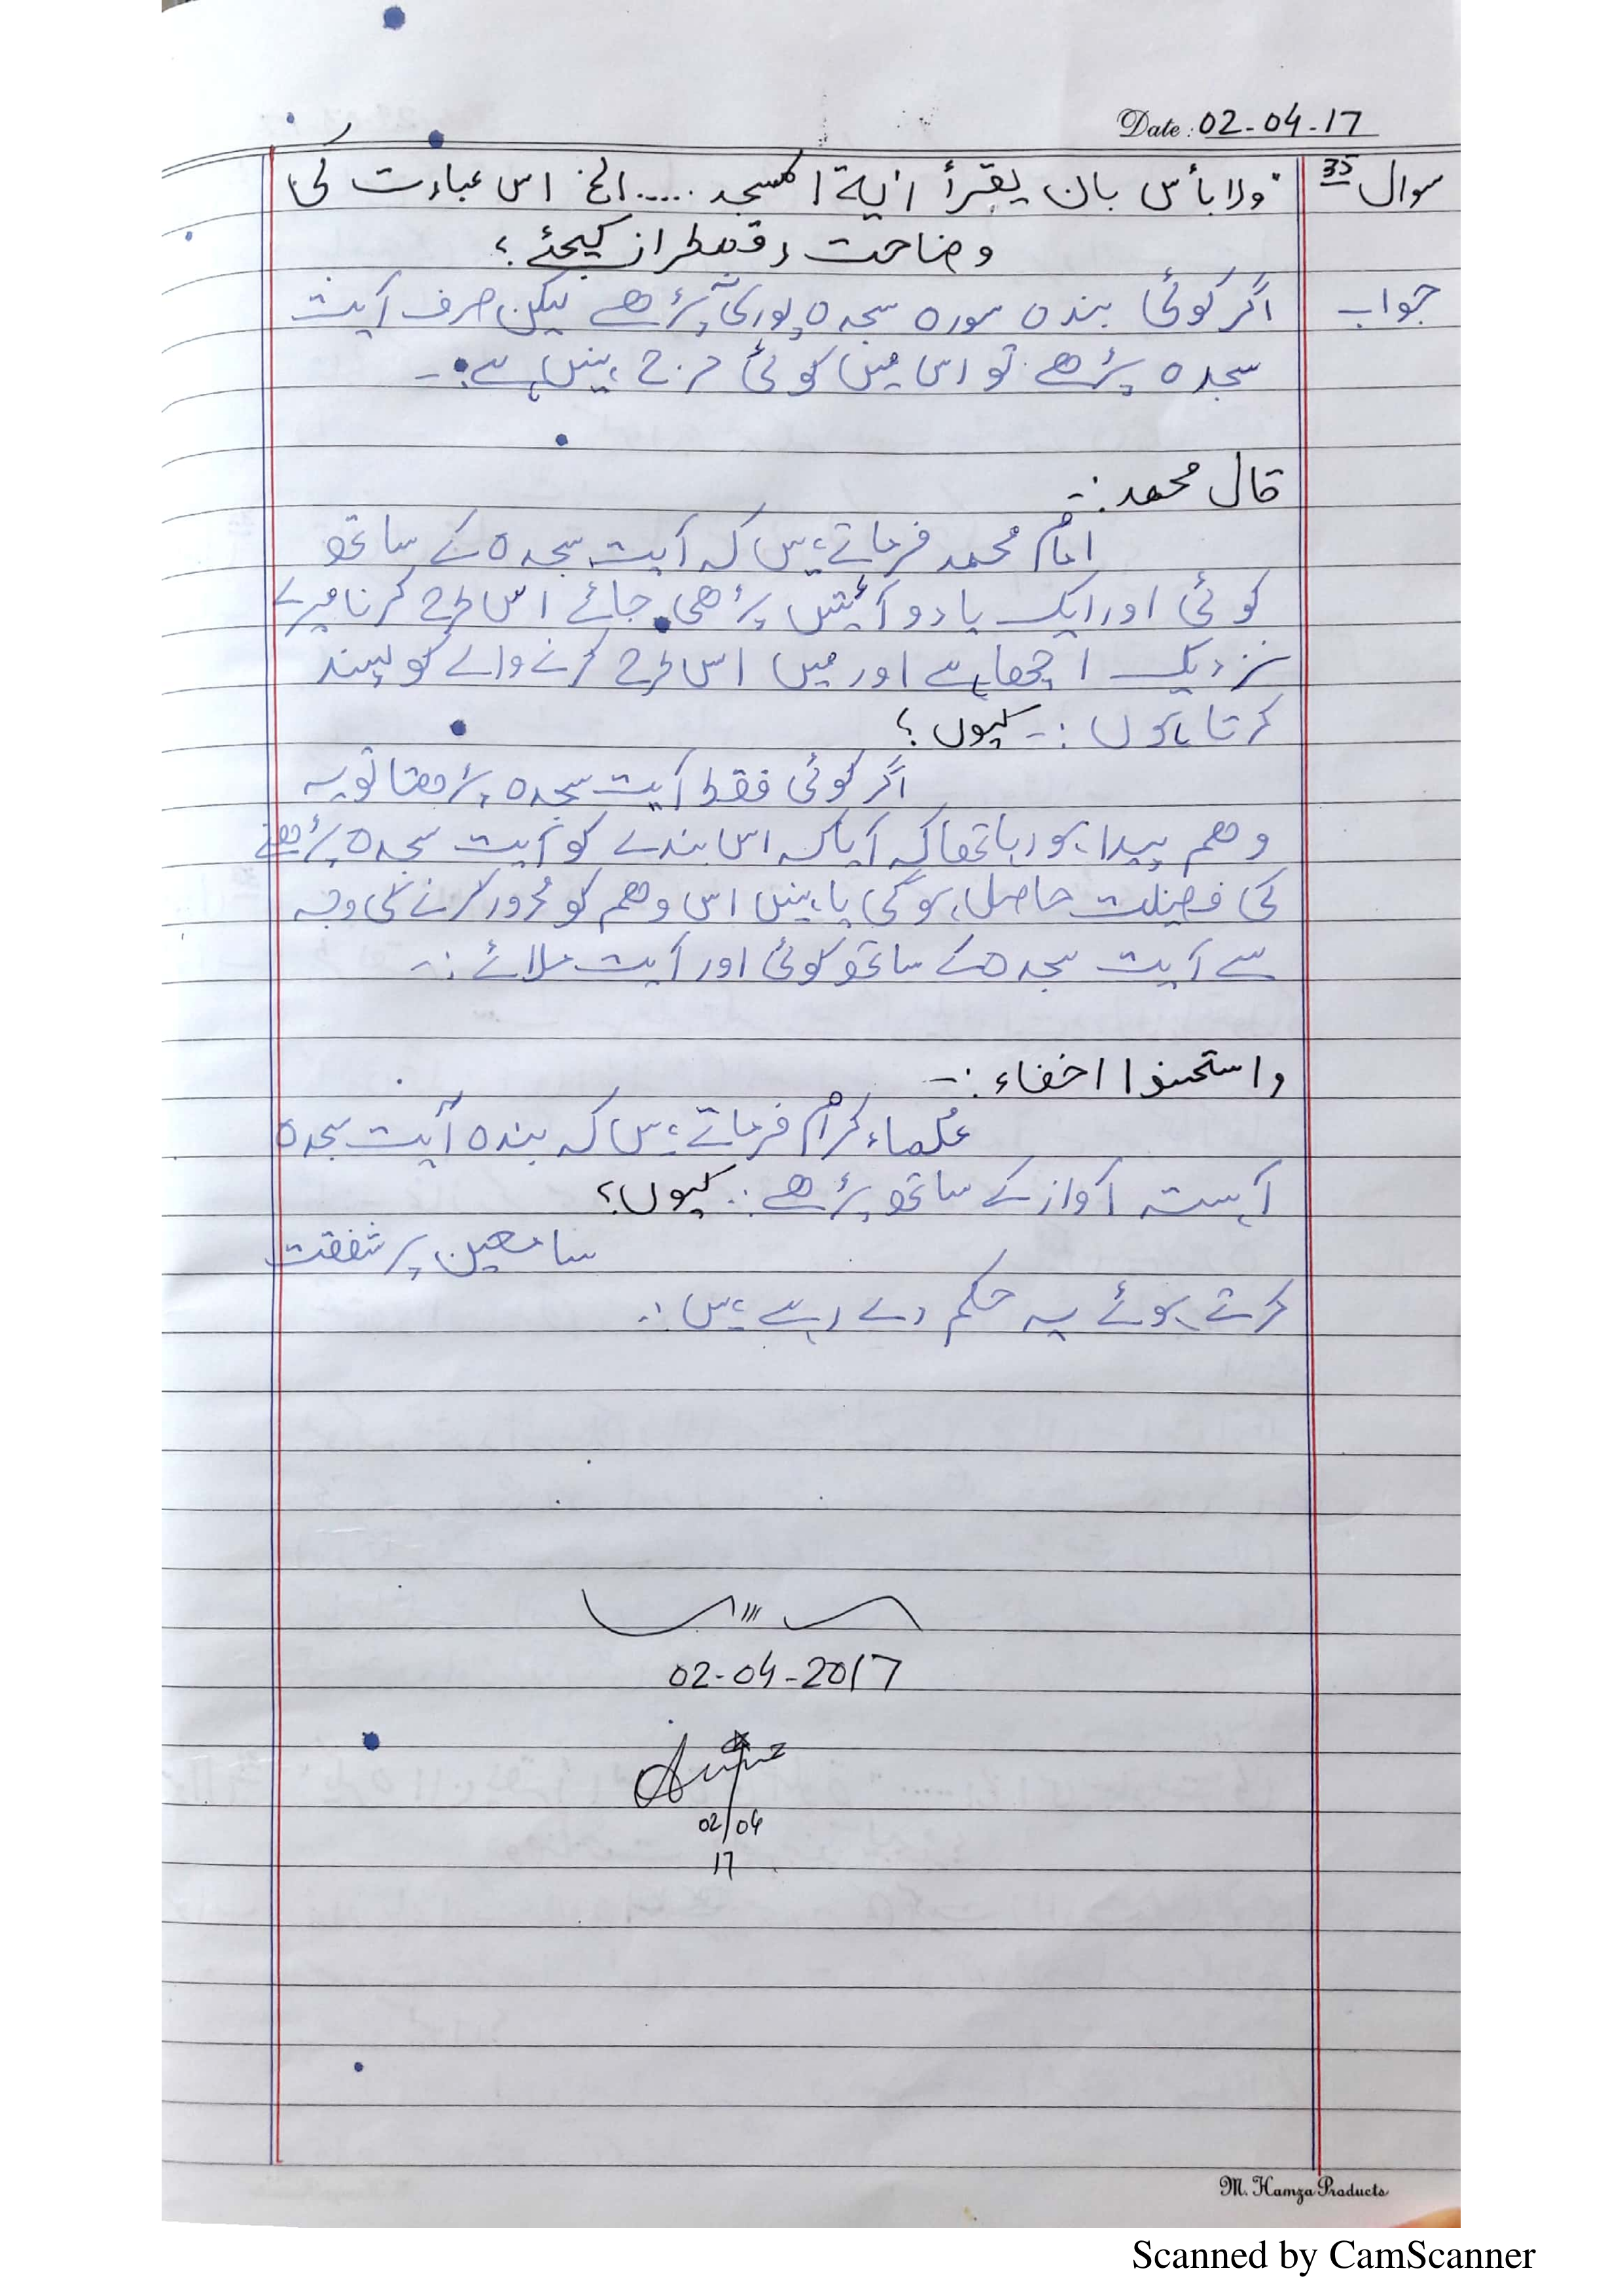 Date: 02-04-17
سوال 35 "ولا بأس بان يقرأ اٰية السجد ..... الخ اس عبارت کی
وضاحت رقمطراز کیجئے؟
جواب اگر کوئی بندہ سورہ سجدہ پوری پڑھے لیکن صرف آیت
سجدہ پڑھے تو اس میں کوئی حرج نہیں ہے:-
قال محمد:-
امام محمد فرماتے ہیں کہ آیت سجدہ کے ساتھ
کوئی اور ایک یا دو آئیتیں پڑھی جائے اس طرح کرنا میرے
نزدیک اچھا ہے اور میں اس طرح کرنے والے کو پسند
کرتا ہوں:- کیوں؟
اگر کوئی فقط آیت سجدہ پڑھتا تو یہ
وھم پیدا ہو رہا تھا کہ آیا کہ اس بندے کو آیت سجدہ پڑھنے
کی فضیلت حاصل ہوگی یا نہیں اس وھم کو کرنے کی وجہ
سے آیت سجدہ کے ساتھ کوئی اور آیت ملائے:-
واستحسنوا اخفاء:-
علماء کرام فرماتے ہیں کہ بندہ آیت سجدہ
آہستہ آواز کے ساتھ پڑھے:- کیوں؟
سامعین پر شفقت
کرتے ہوئے یہ حکم دے رہے ہیں:-
02-04-2017
02/04
17
M. Hamza Products
Scanned by CamScanner